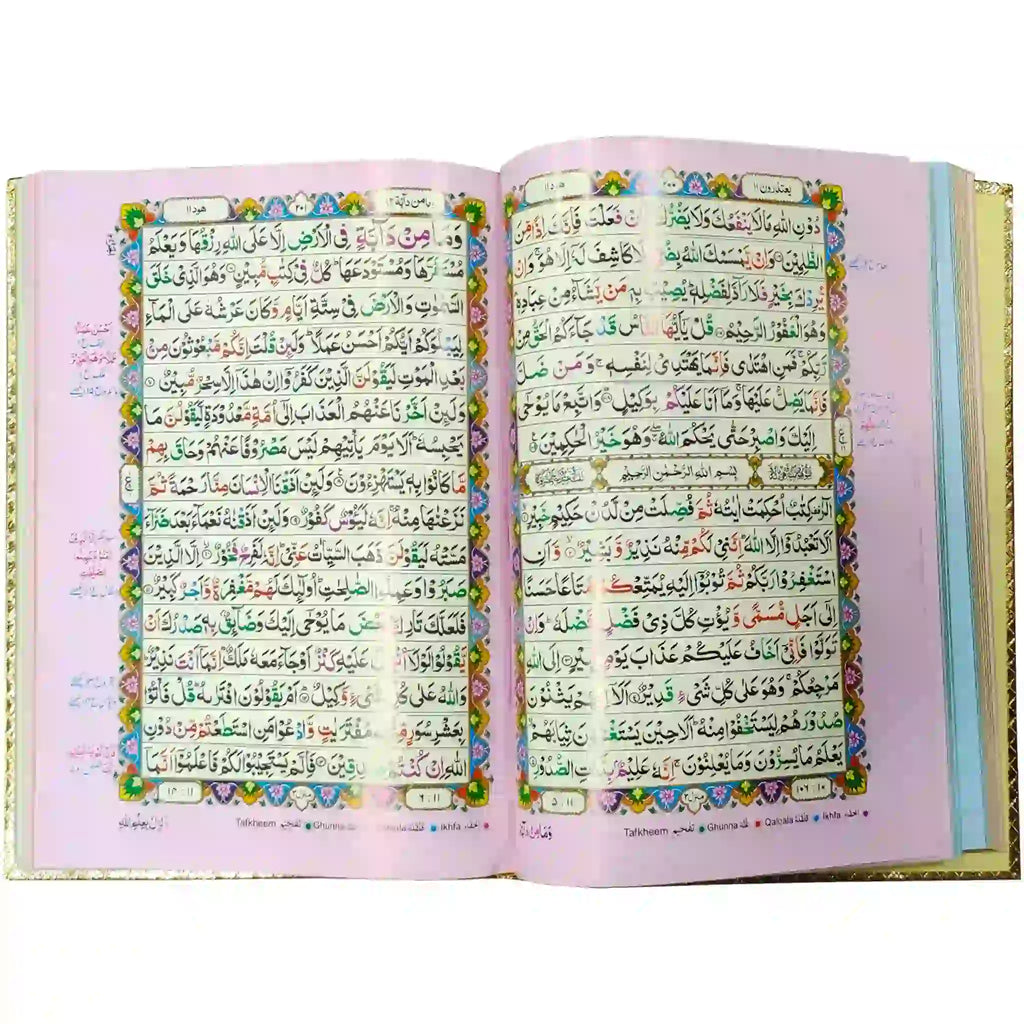 يعتذرون ١١
٢٠٠
هود ١١
دُوْنِ اللّٰهِ مَا لَا يَنْفَعُكَ وَلَا يَضُرُّكَ ۚ فَاِنْ فَعَلْتَ فَاِنَّكَ اِذًا مِّنَ
الظّٰلِمِيْنَ وَاِنْ يَّمْسَسْكَ اللّٰهُ بِضُرٍّ فَلَا كَاشِفَ لَهٗٓ اِلَّا هُوَ ۚ وَاِنْ
يُّرِدْكَ بِخَيْرٍ فَلَا رَآدَّ لِفَضْلِهٖ ؕ يُصِيْبُ بِهٖ مَنْ يَّشَآءُ مِنْ عِبَادِهٖ ؕ
وَهُوَ الْغَفُوْرُ الرَّحِيْمُ قُلْ يٰٓاَيُّهَا النَّاسُ قَدْ جَآءَكُمُ الْحَقُّ مِنْ
رَّبِّكُمْ ۚ فَمَنِ اهْتَدٰى فَاِنَّمَا يَهْتَدِىْ لِنَفْسِهٖ ۚ وَمَنْ ضَلَّ
فَاِنَّمَا يَضِلُّ عَلَيْهَا ۚ وَمَآ اَنَا عَلَيْكُمْ بِوَكِيْلٍ وَاتَّبِعْ مَا يُوْحٰٓى
اِلَيْكَ وَاصْبِرْ حَتّٰى يَحْكُمَ اللّٰهُ ۖۚ وَهُوَ خَيْرُ الْحٰكِمِيْنَ
بِسْمِ اللّٰهِ الرَّحْمٰنِ الرَّحِيْمِ
الٓرٰ ۟ كِتٰبٌ اُحْكِمَتْ اٰيٰتُهٗ ثُمَّ فُصِّلَتْ مِنْ لَّدُنْ حَكِيْمٍ خَبِيْرٍ
اَلَّا تَعْبُدُوْٓا اِلَّا اللّٰهَ ؕ اِنَّنِىْ لَكُمْ مِّنْهُ نَذِيْرٌ وَّبَشِيْرٌ وَّاَنِ
اسْتَغْفِرُوْا رَبَّكُمْ ثُمَّ تُوْبُوْٓا اِلَيْهِ يُمَتِّعْكُمْ مَّتَاعًا حَسَنًا
اِلٰٓى اَجَلٍ مُّسَمًّى وَّيُؤْتِ كُلَّ ذِىْ فَضْلٍ فَضْلَهٗ ؕ وَاِنْ
تَوَلَّوْا فَاِنِّىْٓ اَخَافُ عَلَيْكُمْ عَذَابَ يَوْمٍ كَبِيْرٍ اِلَى اللّٰهِ
مَرْجِعُكُمْ ۚ وَهُوَ عَلٰى كُلِّ شَىْءٍ قَدِيْرٌ اَلَآ اِنَّهُمْ يَثْنُوْنَ
صُدُوْرَهُمْ لِيَسْتَخْفُوْا مِنْهُ ؕ اَلَا حِيْنَ يَسْتَغْشُوْنَ ثِيَابَهُمْ ۙ
يَعْلَمُ مَا يُسِرُّوْنَ وَمَا يُعْلِنُوْنَ ۚ اِنَّهٗ عَلِيْمٌۢ بِذَاتِ الصُّدُوْرِ
١٠٦ : ١٠
منزل ٣
١١ : ٥
Tafkheem تفخيم Ghunna غنّة Qalqala قلقلة Ikhfa اخفاء
وَمَا مِنْ دَآبَّةٍ
وما من دآبة ١٢
٢٠١
هود ١١
وَمَا مِنْ دَآبَّةٍ فِى الْاَرْضِ اِلَّا عَلَى اللّٰهِ رِزْقُهَا وَيَعْلَمُ
مُسْتَقَرَّهَا وَمُسْتَوْدَعَهَا ؕ كُلٌّ فِىْ كِتٰبٍ مُّبِيْنٍ وَهُوَ الَّذِىْ خَلَقَ
السَّمٰوٰتِ وَالْاَرْضَ فِىْ سِتَّةِ اَيَّامٍ وَّكَانَ عَرْشُهٗ عَلَى الْمَآءِ
لِيَبْلُوَكُمْ اَيُّكُمْ اَحْسَنُ عَمَلًا ؕ وَلَئِنْ قُلْتَ اِنَّكُمْ مَّبْعُوْثُوْنَ مِنْۢ
بَعْدِ الْمَوْتِ لَيَقُوْلَنَّ الَّذِيْنَ كَفَرُوْٓا اِنْ هٰذَآ اِلَّا سِحْرٌ مُّبِيْنٌ
وَلَئِنْ اَخَّرْنَا عَنْهُمُ الْعَذَابَ اِلٰٓى اُمَّةٍ مَّعْدُوْدَةٍ لَّيَقُوْلُنَّ مَا
يَحْبِسُهٗ ؕ اَلَا يَوْمَ يَاْتِيْهِمْ لَيْسَ مَصْرُوْفًا عَنْهُمْ وَحَاقَ بِهِمْ
مَّا كَانُوْا بِهٖ يَسْتَهْزِءُوْنَ وَلَئِنْ اَذَقْنَا الْاِنْسَانَ مِنَّا رَحْمَةً ثُمَّ
نَزَعْنٰهَا مِنْهُ ۚ اِنَّهٗ لَيَـُٔوْسٌ كَفُوْرٌ وَلَئِنْ اَذَقْنٰهُ نَعْمَآءَ بَعْدَ ضَرَّآءَ
مَسَّتْهُ لَيَقُوْلَنَّ ذَهَبَ السَّيِّاٰتُ عَنِّىْ ؕ اِنَّهٗ لَفَرِحٌ فَخُوْرٌ اِلَّا الَّذِيْنَ
صَبَرُوْا وَعَمِلُوا الصّٰلِحٰتِ ؕ اُولٰٓئِكَ لَهُمْ مَّغْفِرَةٌ وَّاَجْرٌ كَبِيْرٌ
فَلَعَلَّكَ تَارِكٌۢ بَعْضَ مَا يُوْحٰٓى اِلَيْكَ وَضَآئِقٌۢ بِهٖ صَدْرُكَ اَنْ
يَّقُوْلُوْا لَوْلَآ اُنْزِلَ عَلَيْهِ كَنْزٌ اَوْ جَآءَ مَعَهٗ مَلَكٌ ؕ اِنَّمَآ اَنْتَ نَذِيْرٌ ؕ
وَاللّٰهُ عَلٰى كُلِّ شَىْءٍ وَّكِيْلٌ اَمْ يَقُوْلُوْنَ افْتَرٰىهُ ؕ قُلْ فَاْتُوْا
بِعَشْرِ سُوَرٍ مِّثْلِهٖ مُفْتَرَيٰتٍ وَّادْعُوْا مَنِ اسْتَطَعْتُمْ مِّنْ دُوْنِ
اللّٰهِ اِنْ كُنْتُمْ صٰدِقِيْنَ فَاِلَّمْ يَسْتَجِيْبُوْا لَكُمْ فَاعْلَمُوْٓا اَنَّمَآ
١١ : ٦
منزل ٣
١١ : ١٤
Tafkheem تفخيم Ghunna غنّة قلقلة Ikhfa اخفاء
اُنْزِلَ بِعِلْمِ اللّٰهِ